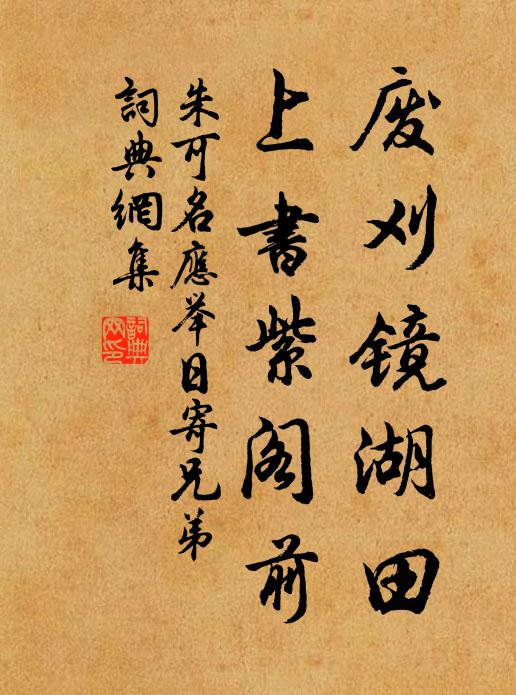 废刈镜湖田
上书紫阁前
朱可名應举日寄兄弟
詞典網集
詞典網印